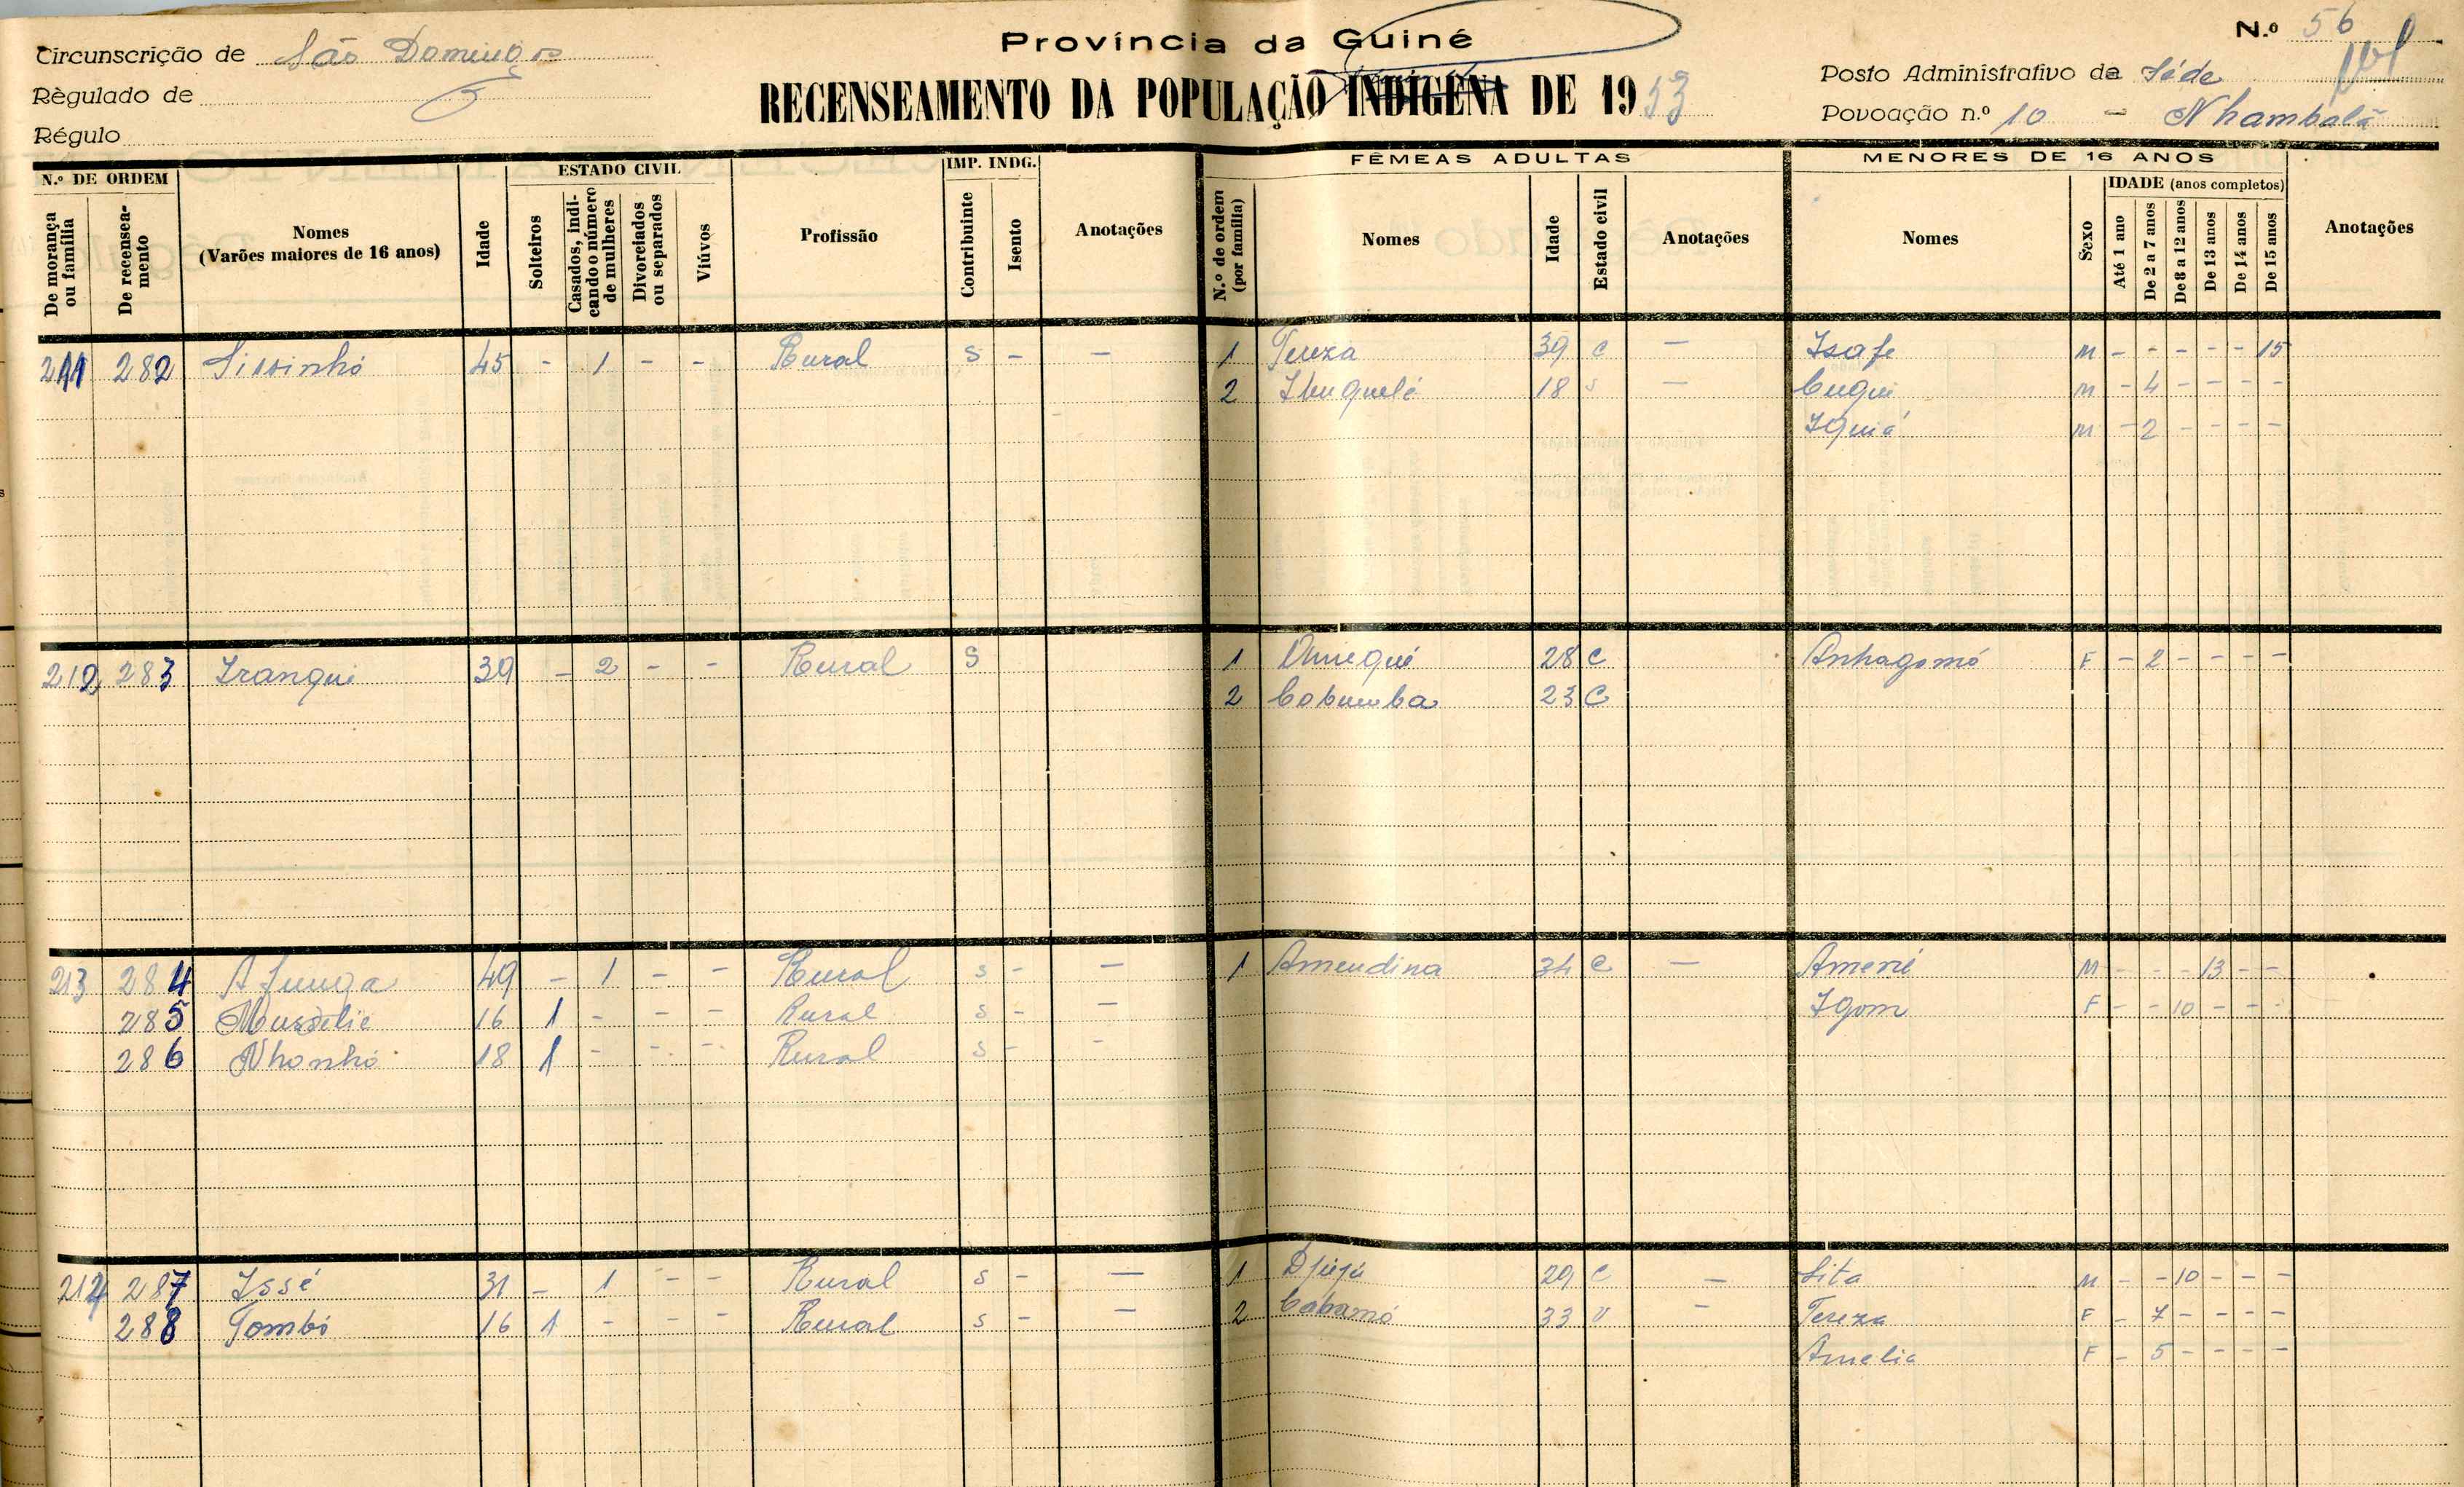 Província da Guiné
N.º 56
Circunscrição de São Domingos
Règulado de
Régulo
RECENSEAMENTO DA POPULAÇÃO INDÍGENA DE 1953
Posto Administrativo de Séde
Povoação n.º 10 - Nhambalã
N.º DE ORDEM
De morança ou família
De recenseamento
Nomes (Varões maiores de 16 anos)
Idade
ESTADO CIVIL
Solteiros
Casados, indicando o número de mulheres
Divorciados ou separados
Viúvos
Profissão
IMP. INDG.
Contribuinte
Isento
Anotações
FÊMEAS ADULTAS
N.º de ordem (por família)
Nomes
Idade
Estado civil
Anotações
MENORES DE 16 ANOS
Nomes
Sexo
IDADE (anos completos)
Até 1 ano
De 2 a 7 anos
De 8 a 12 anos
De 13 anos
De 14 anos
De 15 anos
Anotações
211 282 Sissinhó 45 - 1 - - Rural S - - 1 Tereza 39 C - Isafe M - - - - - 15
2 18 S - Cuqui M - 4 - - - -
Iquiá M - 2 - - - -
212 283 Iranqui 39 - 2 - - Rural S 1 28 C Anhagomó F - 2 - - - -
2 Cobumba 23 C
213 284 Afunga 49 - 1 - - Rural S - - 1 Amendina 34 C - Amené M - - - 13 - -
285 Mussélie 16 1 - - - Rural S - - Igom F - - 10 - - -
286 Nhonhó 18 1 - - - Rural S - -
214 287 Issé 31 - 1 - - Rural S - - 1 Djejú 29 C - Sita M - - 10 - - -
288 Tombó 16 1 - - - Rural S - - 2 Cobamó 33 V - Tereza F - 7 - - - -
Amelia F - 5 - - - -